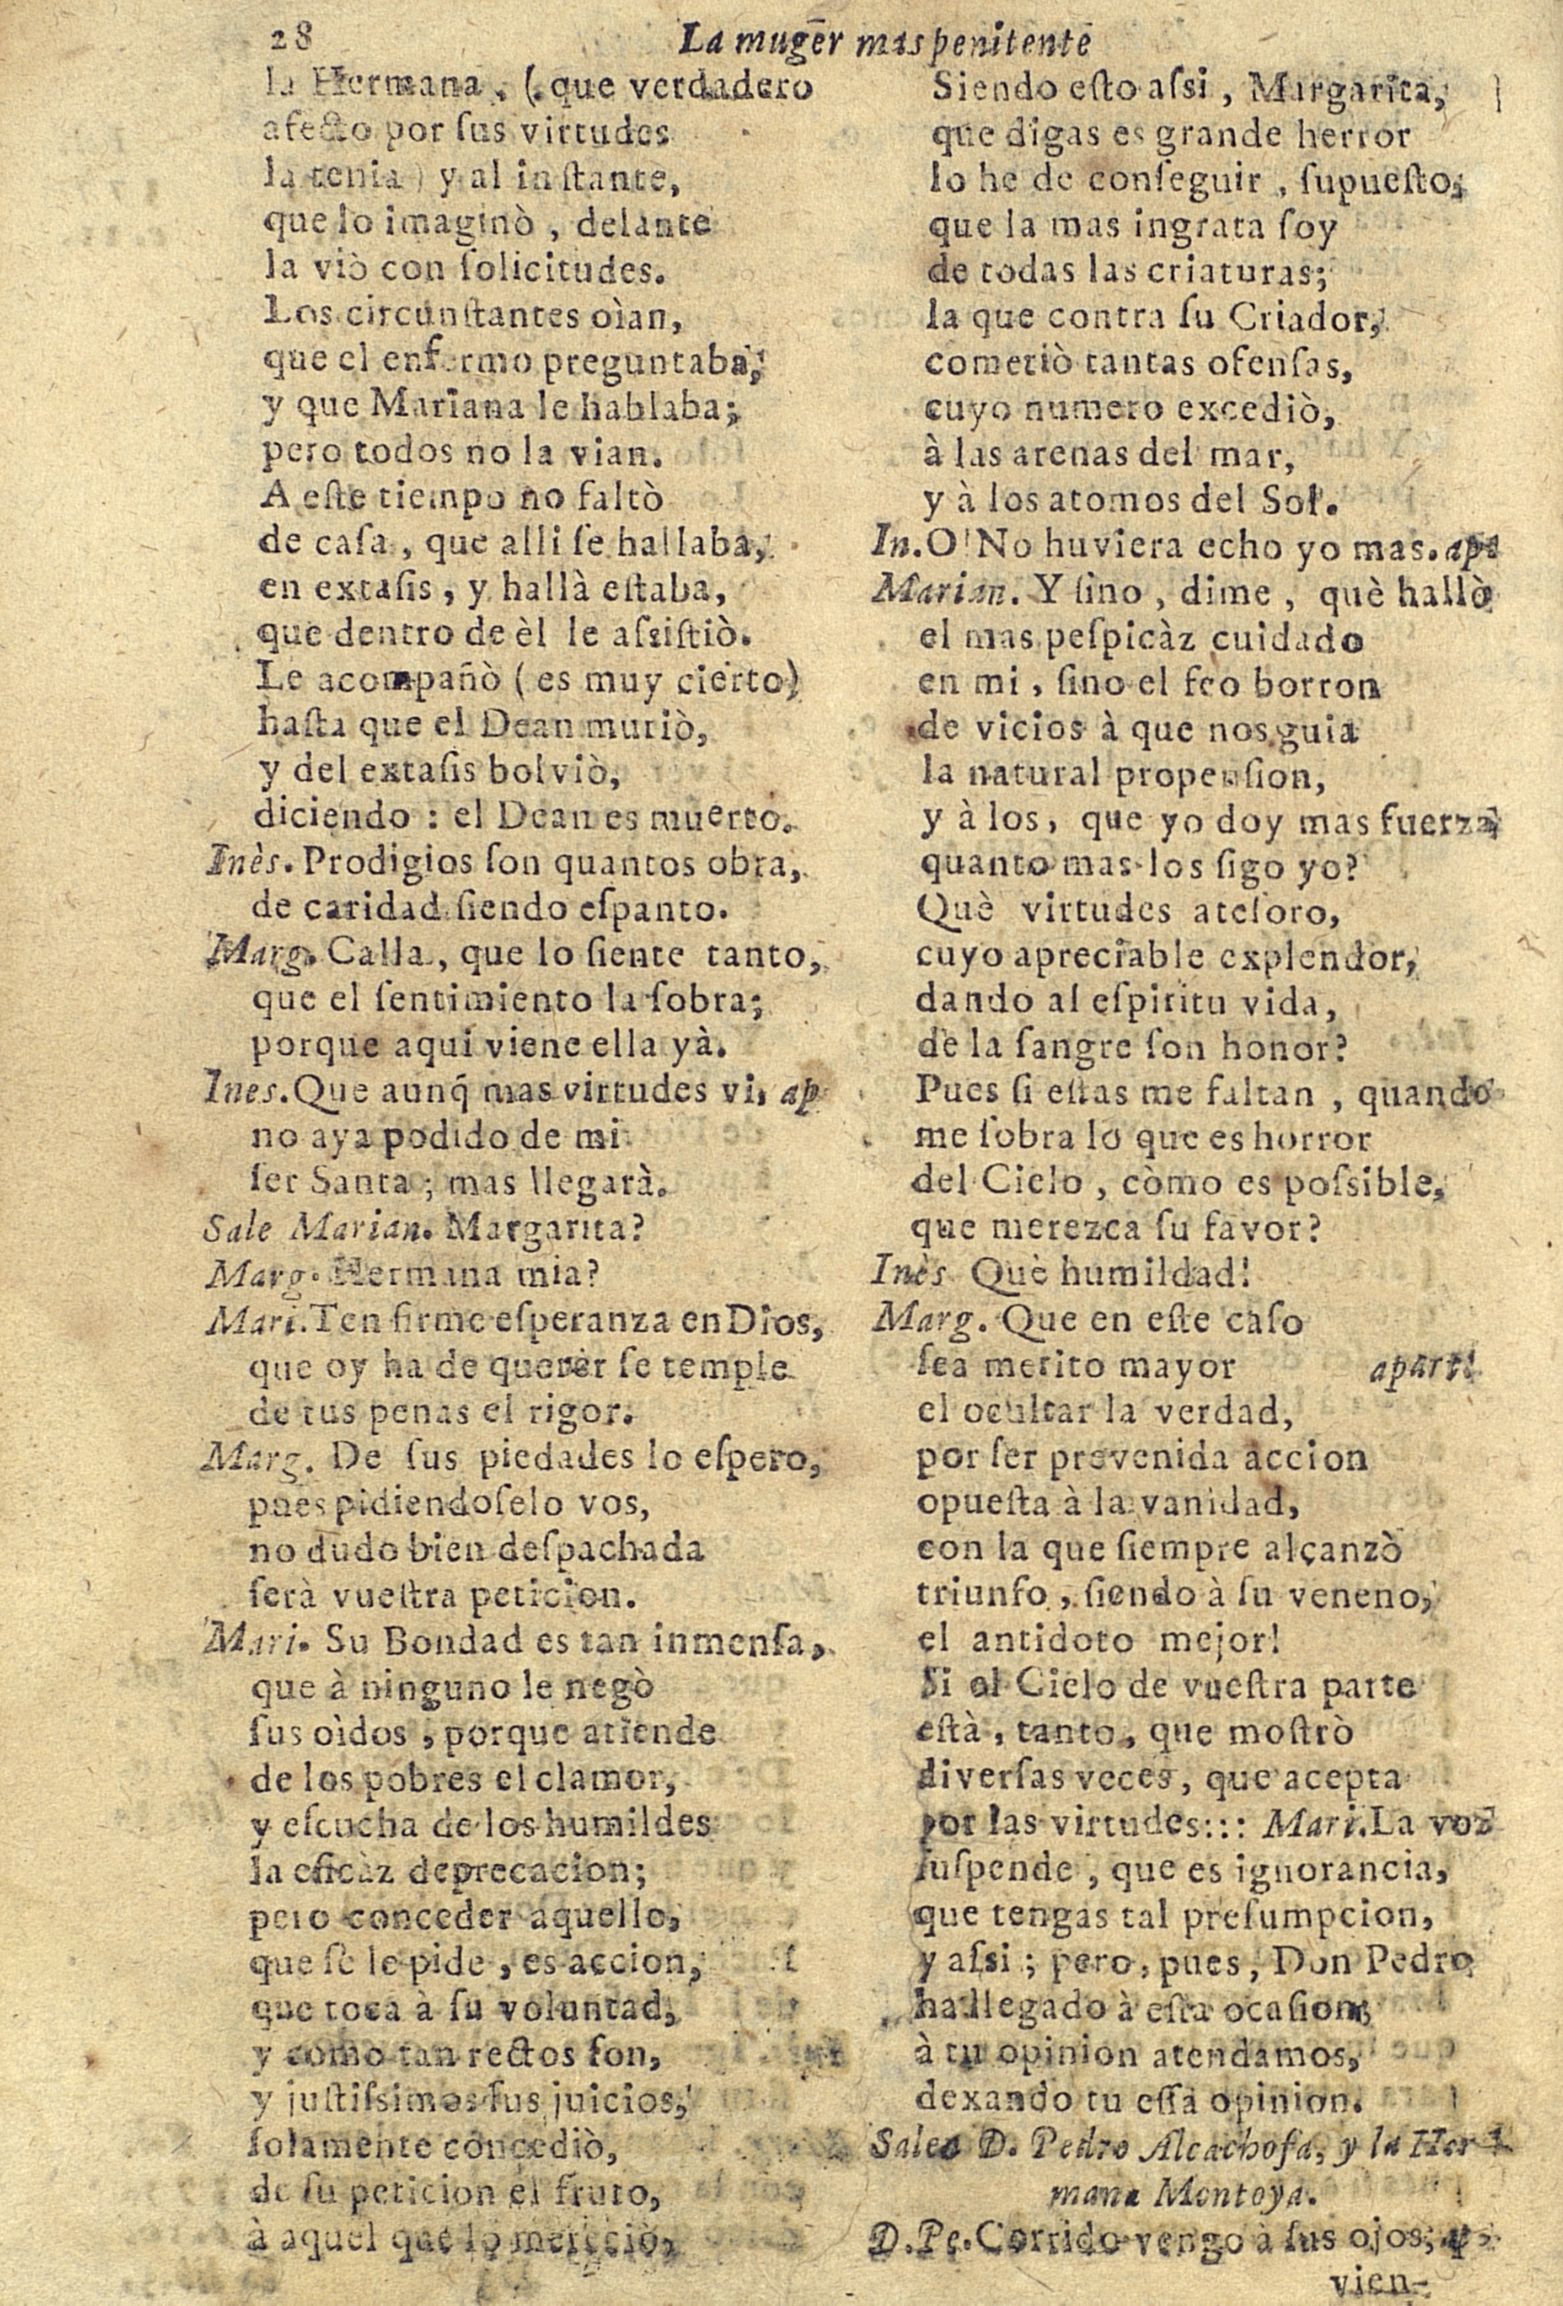 28
La muger mas penitente
la Hermana, (que verdadero
afecto por ſus virtudes
la tenia) y al inſtante,
que lo imaginò, delante
la viò con ſolicitudes.
Los circunſtantes oìan,
que el enfermo preguntaba,
y que Mariana le hablaba;
pero todos no la vian.
A eſte tiempo no faltò
de caſa, que alli ſe hallaba,
en extaſis, y hallà eſtaba,
que dentro de èl le aſsiſtiò.
Le acompañò (es muy cierto)
haſta que el Dean muriò,
y del extaſis bolviò,
diciendo: el Dean es muerto.
Inès. Prodigios ſon quantos obra,
de caridad ſiendo eſpanto.
Marg. Calla, que lo ſiente tanto,
que el ſentimiento la ſobra;
porque aqui viene ella yà.
Ines. Que aunq̃ mas virtudes vi, ap
no aya podido de mi
ſer Santa; mas llegarà.
Sale Marian. Margarita?
Marg. Hermana mia?
Mari. Ten firme eſperanza en Dios,
que oy ha de querèr ſe temple
de tus penas el rigor.
Marg. De ſus piedades lo eſpero,
pues pidiendoſelo vos,
no dudo bien deſpachada
ſerà vueſtra peticion.
Mari. Su Bondad es tan inmenſa,
que à ninguno le negò
ſus oìdos, porque atiende
de los pobres el clamor,
y eſcucha de los humildes
la eficàz deprecacion;
pero conceder aquello,
que ſe le pide, es accion,
que toca à ſu voluntad,
y como tan rectos ſon,
y juſtiſsimos ſus juicios,
ſolamente concediò,
de ſu peticion el fruto,
à aquel que lo mereciò,
Siendo eſto aſsi, Margarita,
que digas es grande herror
lo he de conſeguir, ſupueſto,
que la mas ingrata ſoy
de todas las criaturas;
la que contra ſu Criador,
cometiò tantas ofenſas,
cuyo numero excediò,
à las arenas del mar,
y à los atomos del Sol.
In. O! No huviera echo yo mas. ap.
Marian. Y ſino, dime, què hallò
el mas peſpicàz cuidado
en mi, ſino el feo borron
de vicios à que nos guia
la natural propenſion,
y à los, que yo doy mas fuerza,
quanto mas los ſigo yo?
Què virtudes ateſoro,
cuyo apreciable explendor,
dando al eſpiritu vida,
de la ſangre ſon honor?
Pues ſi eſtas me faltan, quando
me ſobra lo que es horror
del Cielo, còmo es poſsible,
que merezca ſu favor?
Inès Què humildad!
Marg. Que en eſte caſo
ſea merito mayor apart.
el ocultar la verdad,
por ſer prevenida accion
opueſta à la vanidad,
con la que ſiempre alçanzò
triunfo, ſiendo à ſu veneno,
el antidoto mejor!
Si el Cielo de vueſtra parte
eſtà, tanto, que moſtrò
diverſas veces, que acepta
por las virtudes::: Mari. La voz
ſuſpende, que es ignorancia,
que tengas tal preſumpcion,
y aſsi; pero, pues, Don Pedro
ha llegado à eſta ocaſion,
à tu opinion atendamos,
dexando tu eſſa opinion.
Salen D. Pedro Alcachofa, y la Her-
mana Montoya.
D. Pe. Corrido vengo à ſus ojos, y
vien-